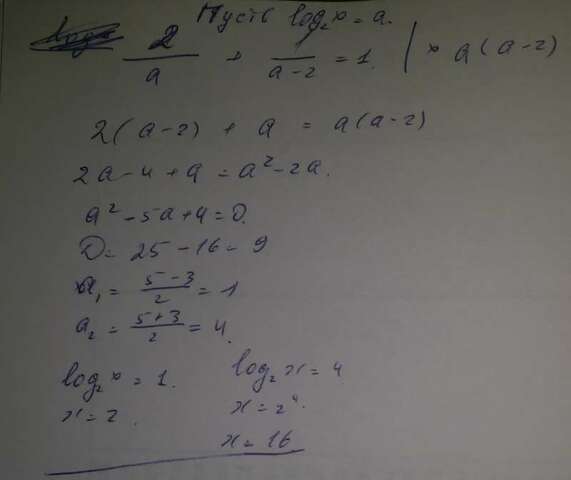 Пусть log₂x = a.
2/a + 1/(a-2) = 1. | × a(a-2)
2(a-2) + a = a(a-2)
2a-4+a = a²-2a.
a²-5a+4=0.
D= 25-16=9
a₁= (5-3)/2 = 1
a₂= (5+3)/2 = 4.
log₂x = 1. log₂x=4
x=2. x=2⁴.
x=16